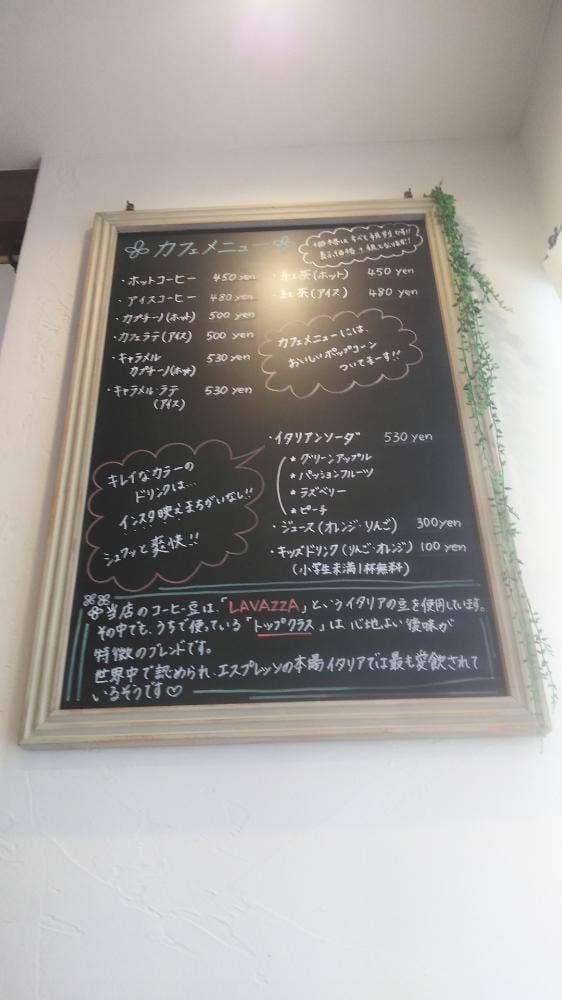 カフェメニュー
価格はすべて税別です!!
表示価格+税となります!!
・ホットコーヒー 450 yen
・アイスコーヒー 480 yen
・カプチーノ(ホット) 500 yen
・カフェラテ(アイス) 500 yen
・キャラメル
カプチーノ(ホット) 530 yen
・キャラメル・ラテ
(アイス) 530 yen
・紅茶(ホット) 450 yen
・紅茶(アイス) 480 yen
カフェメニューには、
おいしいポップコーン
ついてまーす!!
・イタリアンソーダ 530 yen
★ グリーンアップル
★ パッションフルーツ
★ ラズベリー
★ ピーチ
・ジュース(オレンジ・りんご) 300 yen
・キッズドリンク(りんご・オレンジ) 100 yen
(小学生未満1杯無料)
キレイなカラーの
ドリンクは…
インスタ映えまちがいなし!!
シュワッと爽快!!
当店のコーヒー豆は、「LAVAZZA」というイタリアの豆を使用しています。
その中でも、うちで使っている「トップクラス」は心地よい後味が
特徴のブレンドです。
世界中で認められ、エスプレッソの本場イタリアでは最も愛飲されて
いるそうです♡